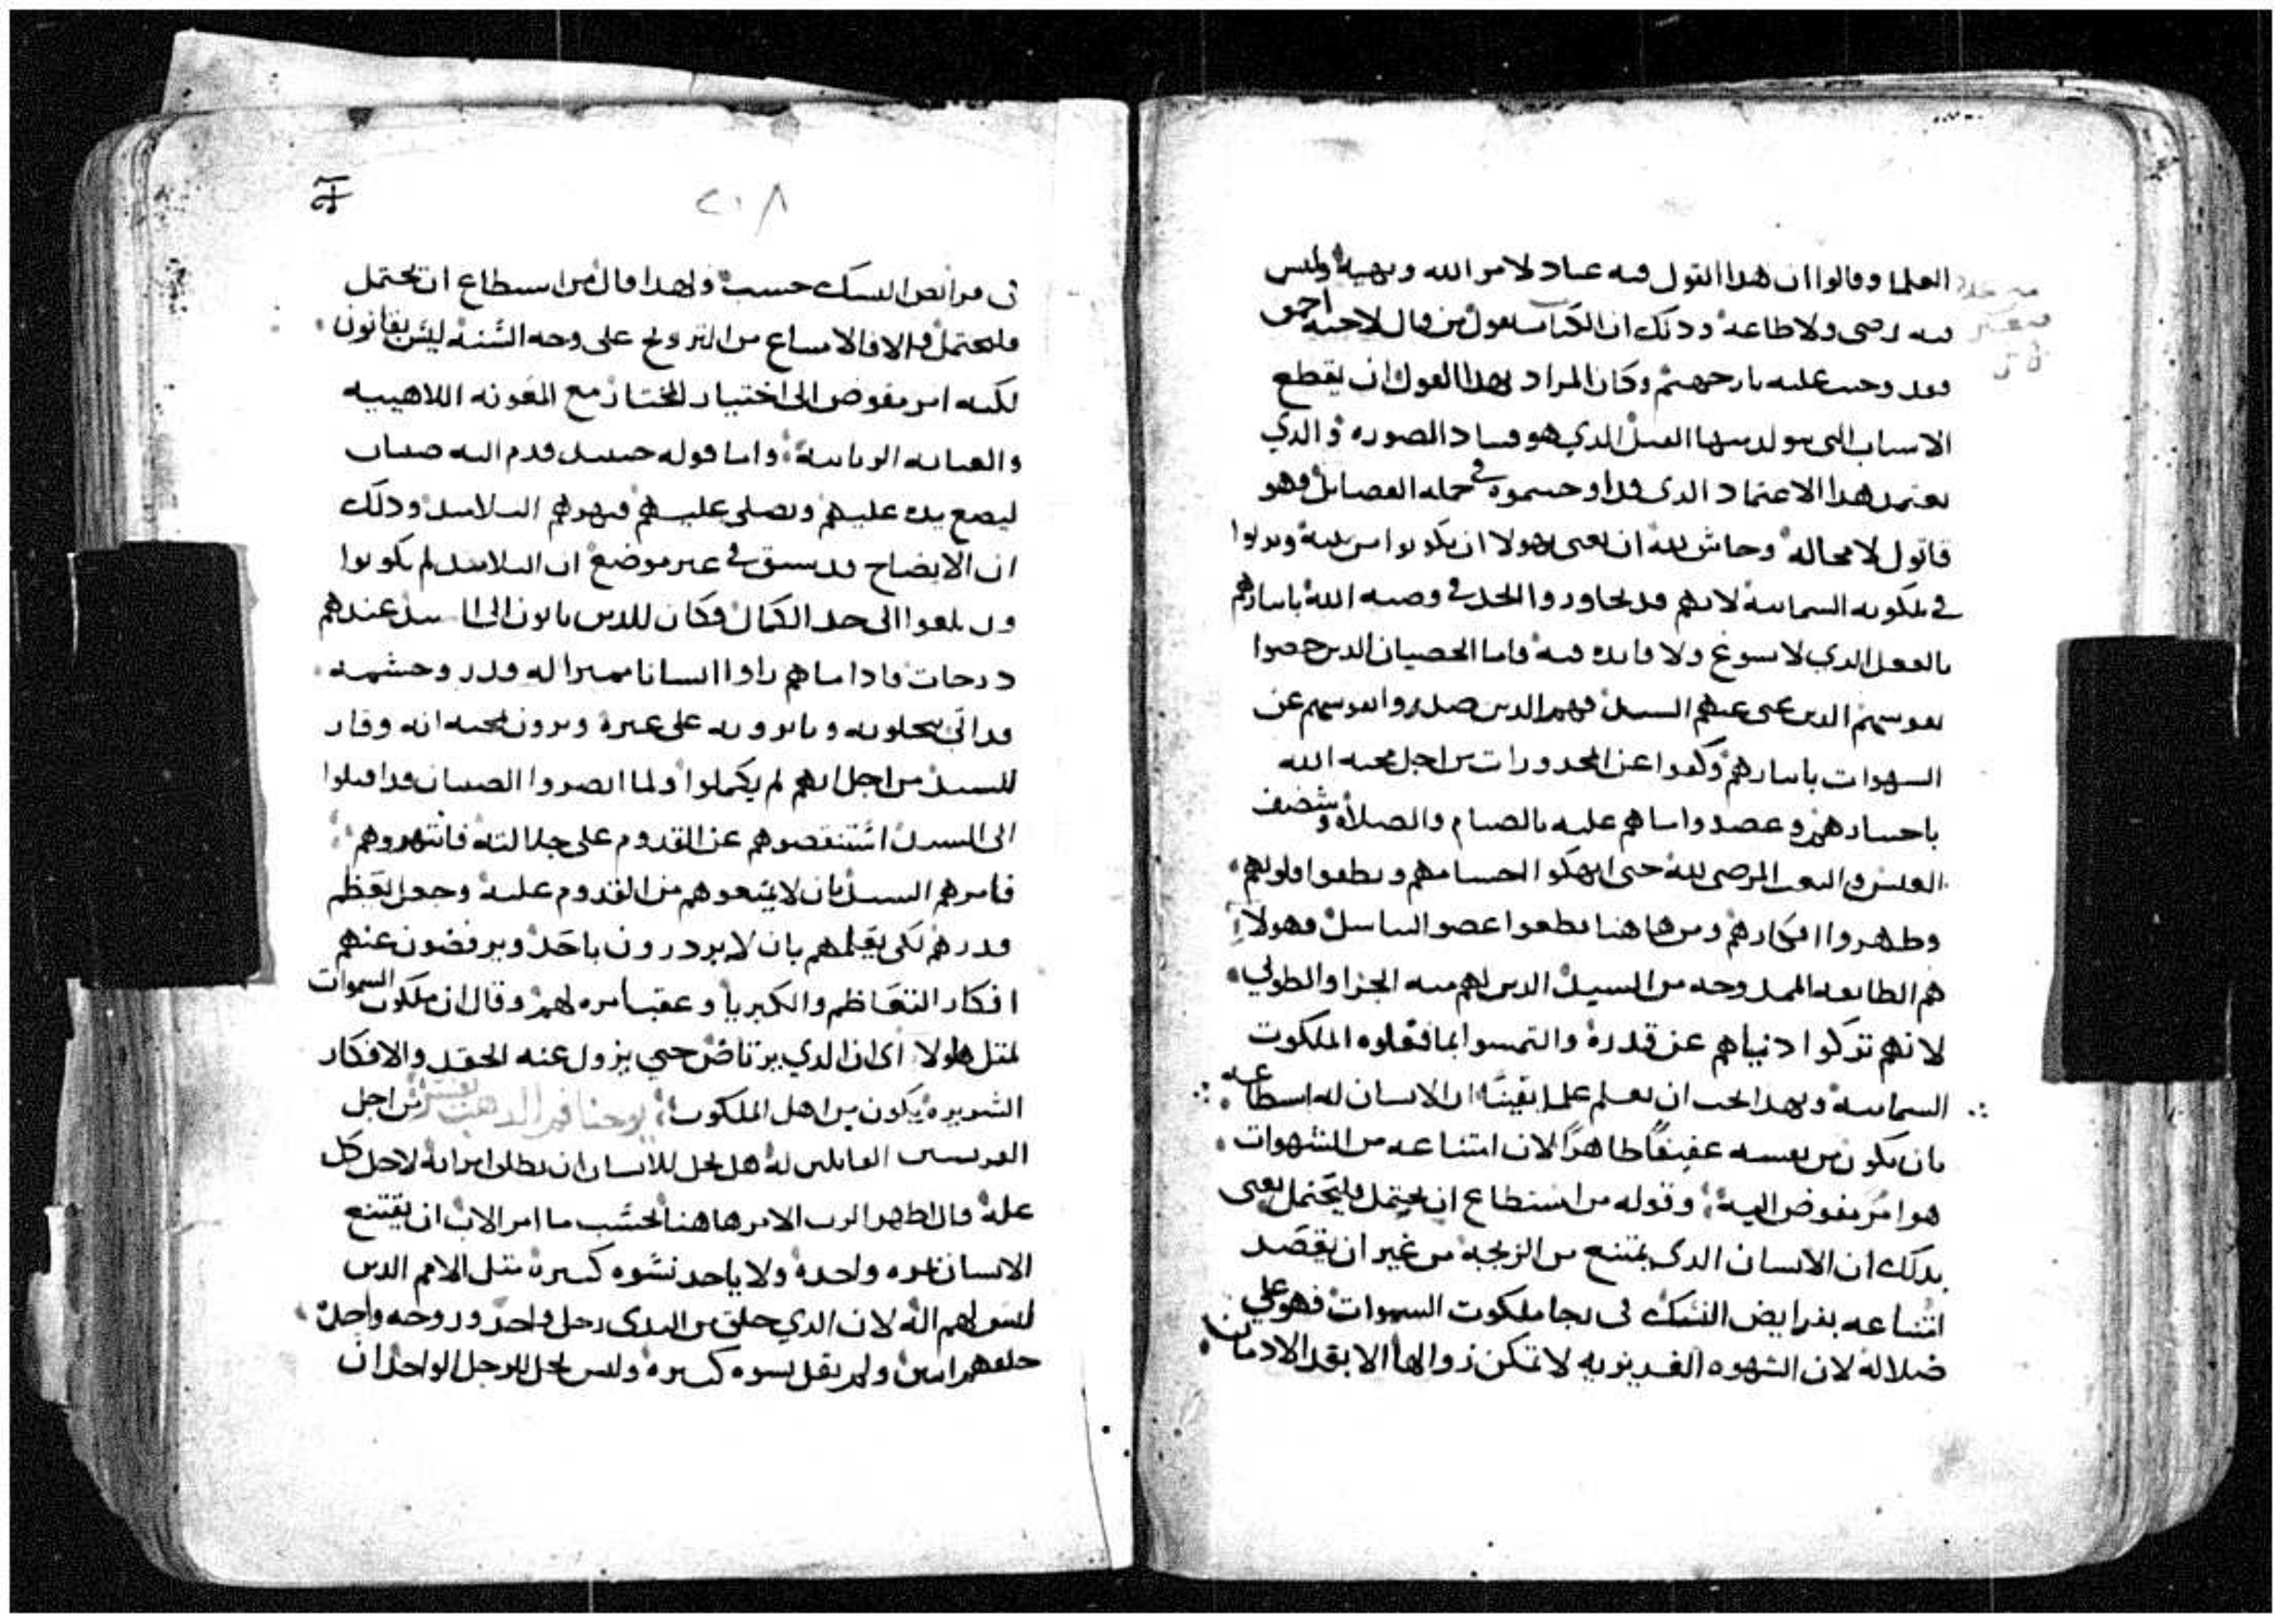 العلما وقالوا ان هدا القول فيه عناد لامر الله ونهيه وليس
فيه رضى ولا طاعه ودلك ان الكتاب يقول من قال لاخيه احمق
فقد وجبت عليه نار جهنم وكان المراد بهدا القول ان يقطع
الاسباب التى يتولد منها الفسل الدي هو فساد الصوره والدي
يعتمد هدا الاعتماد الدى قد اوحسموه في جمله الفصايل فهو
قاتول لا محاله وحاش لله ان يعنى بهولا ان يكونوا من بنيه ويدنوا
في ملكوته السماييه لانهم قد تجاوزوا الحد في وصيه الله باسارهم
بالفعل الدي لا يسوغ ولا فايده فيه فاما الخصيان الدين خصوا
نفوسهم الدين عنى عنهم السيد فهم الدين صدروا نفوسهم عن
الشهوات باسارهم وكفوا عن المحدورات من اجل محبه الله
باجسادهم وعضدوا ما هم عليه بالصيام والصلاه وشضف
العيش والتعب المرضى لله حتى انهكوا اجسامهم ونظفوا قلوبهم
وطهروا افكارهم ومن هاهنا قطعوا عضو التناسل وهولاء
هم الطايفه الممدوحه من السيد الدين لهم منه الجزا والطوبى
لانهم تركوا دنياهم عن قدرة والتمسوا بما فعلوه الملكوت
السماييه وبهدا يجب ان نعلم علما يقينا ان الانسان له اسطاعه
بان يكون من نفسه عفيفا طاهرا لان امتناعه من الشهوات
هو امر مفوض اليه وقوله من استطاع ان يحتمل فليحتمل يعنى
بدلك ان الانسان الدى يمتنع من الزيجه من غير ان يقصد
امتناعه بفرايض النسك فى رجا ملكوت السموات فهو على
ضلاله لان الشهوه الغريزيه لا تمكن زوالها الا بقد الادمان
٢١٨
فى فرايض النسك حسب ولهدا قال من اسطاع ان يحتمل
فليحتمل والا فالامتناع من التزويج على وجه السنه ليس بقانون
لكنه امر مفوض الى اختيار المختار مع المعونه اللاهيبيه
والعنايه الربانيه واما قوله حينيد قدم اليه صبيان
ليضع يده عليهم ويصلى عليهم فنهرهم التلاميد ودلك
ان الايضاح قد سبق فى غير موضع ان التلاميد لم يكونوا
قد بلغوا الى حد الكمال فكان للدين ياتون الى السيد عندهم
درجات فادا ما هم راوا انسانا مميزا له قدر وحشمه
قد اتى يجلونه ويوثرونه على غيره ويرون محبه انه وقار
للسيد من اجل انهم لم يكملوا ولما ابصروا الصبيان قد اقبلوا
الى السيد استنقصوهم عن القدوم على جلالته فانتهروهم
فامرهم السيد بان لا يمنعوهم من القدوم عليه وجعل يعظم
قدرهم لكى يعلمهم بان لا يزدرون باحد ويرفضون عنهم
افكار التعاظم والكبريا وعقب امره لهم وقال ان ملكوت السموات
لمثل هاولا اى ان الدي يرتاض حتى يزول عنه الحقد والافكار
الشريره يكون من اهل الملكوت يوحنا فم الدهب يفسر من اجل
الفريسيين القايلين له هل يحل للانسان ان يطلق امراته لاجل كل
عله قال اظهر الرب الامر هاهنا بحسب ما امر الاب ان يقتنع
الانسان بمره واحده ولا ياخد نسوه كثيره مثل الامم الدين
ليس لهم اله لان الدي خلق من البدى رجل واحد وزوجه واحده
خلقهم اثنين ولم يقل نسوه كثيره وليس يحل للرجل الواحد ان